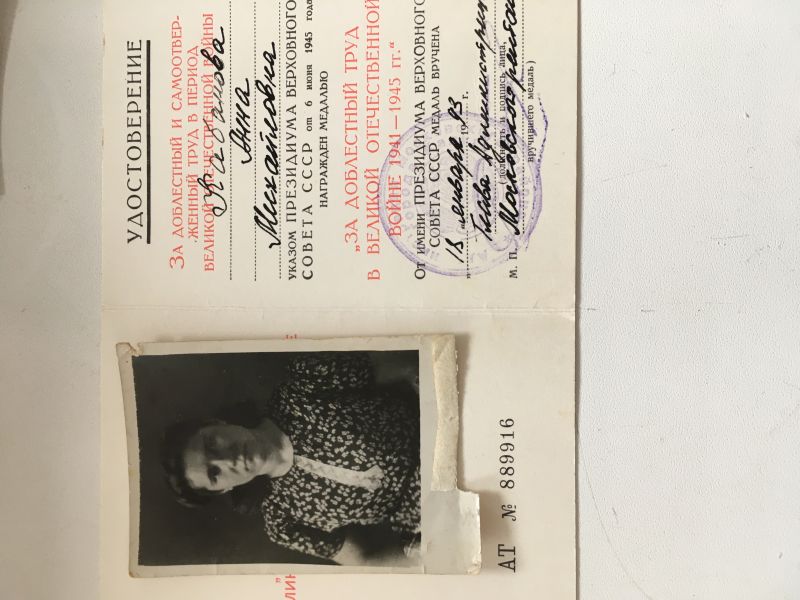 УДОСТОВЕРЕНИЕ
ЗА ДОБЛЕСТНЫЙ И САМООТВЕР-
ЖЕННЫЙ ТРУД В ПЕРИОД
ВЕЛИКОЙ ОТЕЧЕСТВЕННОЙ ВОЙНЫ
Анна
Михайловна
УКАЗОМ ПРЕЗИДИУМА ВЕРХОВНОГО
СОВЕТА СССР от 6 июня 1945 года
НАГРАЖДЕН МЕДАЛЬЮ
„ЗА ДОБЛЕСТНЫЙ ТРУД
В ВЕЛИКОЙ ОТЕЧЕСТВЕННОЙ
ВОЙНЕ 1941—1945 гг.“
ОТ ИМЕНИ ПРЕЗИДИУМА ВЕРХОВНОГО
СОВЕТА СССР МЕДАЛЬ ВРУЧЕНА
января 1993 г.
Глава
(должность и подпись лица,
М. П.
вручившего медаль)
АТ № 889916